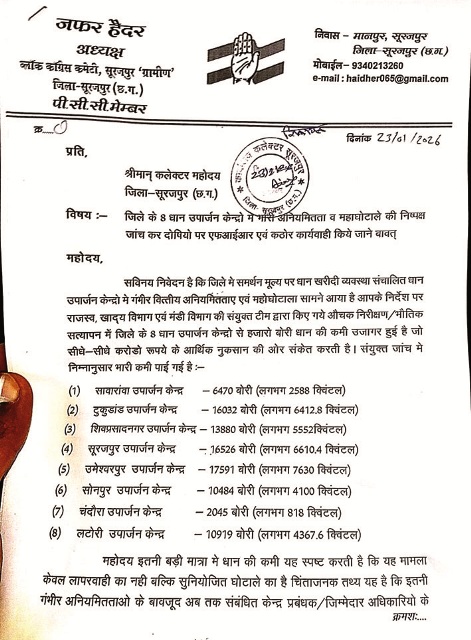 जफर हैदर
अध्यक्ष
ब्लॉक कांग्रेस कमेटी, सूरजपुर 'ग्रामीण'
जिला-सूरजपुर (छ.ग.)
पी.सी.सी.मेम्बर
निवास - मानपुर, सूरजपुर
जिला-सूरजपुर (छ.ग.)
मोबाईल- 9340213260
e-mail : haidher065@gmail.com
क्र.
दिनांक 23/01/2026
प्रति,
श्रीमान् कलेक्टर महोदय
जिला-सूरजपुर (छ.ग.)
कार्यालय कलेक्टर सूरजपुर
जिला-सूरजपुर (छ.ग.)
विषय :– जिले के 8 धान उपार्जन केन्द्रो मे भारी अनियमितता व महाघोटाले की निष्पक्ष
जांच कर दोषियो पर एफआईआर एवं कठोर कार्यवाही किये जाने बावत्
महोदय,
सविनय निवेदन है कि जिले मे समर्थन मूल्य पर धान खरीदी व्यवस्था संचालित धान
उपार्जन केन्द्रो मे गंभीर वित्तीय अनियमितताए एवं महाघोटाला सामने आया है आपके निर्देश पर
राजस्व, खाद्य विभाग एवं मंडी विभाग की संयुक्त टीम द्वारा किए गये औचक निरीक्षण/भौतिक
सत्यापन में जिले के 8 धान उपार्जन केन्द्रो से हजारो बोरी धान की कमी उजागर हुई है जो
सीधे-सीधे करोडो रूपये के आर्थिक नुकसान की ओर संकेत करती है। संयुक्त जांच मे
निम्नानुसार भारी कमी पाई गई है :–
(1) सावारांवा उपार्जन केन्द्र – 6470 बोरी (लगभग 2588 क्विंटल)
(2) टुकुडांड उपार्जन केन्द्र – 16032 बोरी (लगभग 6412.8 क्विंटल)
(3) शिवप्रसादनगर उपार्जन केन्द्र – 13880 बोरी (लगभग 5552क्विंटल)
(4) सूरजपुर उपार्जन केन्द्र – 16526 बोरी (लगभग 6610.4 क्विंटल)
(5) उमेश्वरपुर उपार्जन केन्द्र – 17591 बोरी (लगभग 7630 क्विंटल)
(6) सोनपुर उपार्जन केन्द्र – 10484 बोरी (लगभग 4100 क्विंटल)
(7) चंदौरा उपार्जन केन्द्र – 2045 बोरी (लगभग 818 क्विंटल)
(8) लटोरी उपार्जन केन्द्र – 10919 बोरी (लगभग 4367.6 क्विंटल)
महोदय इतनी बड़ी मात्रा मे धान की कमी यह स्पष्ट करती है कि यह मामला
केवल लापरवाही का नही बल्कि सुनियोजित घोटाले का है चिंताजनक तथ्य यह है कि इतनी
गंभीर अनियमितताओ के बावजूद अब तक संबंधित केन्द्र प्रबंधक/जिम्मेदार अधिकारियो के
क्रमशः....